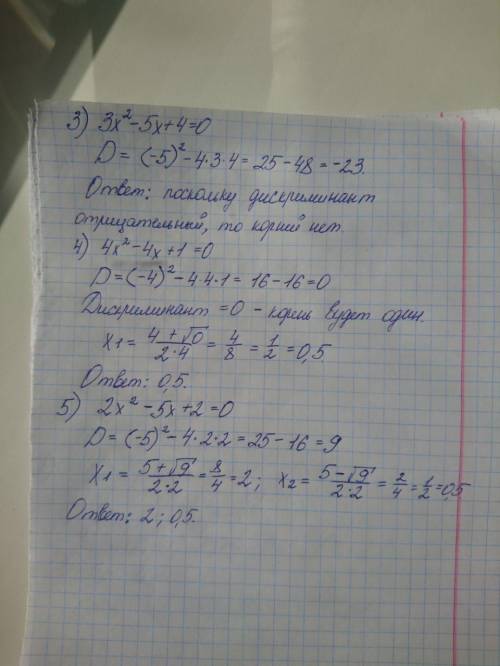 3) 3x² - 5x + 4 = 0
D = (-5)² - 4·3·4 = 25 - 48 = -23.
Ответ: поскольку дискриминант
отрицательный, то корний нет.
4) 4x² - 4x + 1 = 0
D = (-4)² - 4·4·1 = 16 - 16 = 0
Дискриминант = 0 - корень будет один.
x1 = (4 + √0)/(2·4) = 4/8 = 1/2 = 0,5
Ответ: 0,5.
5) 2x² - 5x + 2 = 0
D = (-5)² - 4·2·2 = 25 - 16 = 9
x1 = (5 + √9)/(2·2) = 8/4 = 2; x2 = (5 - √9)/(2·2) = 2/4 = 1/2 = 0,5
Ответ: 2; 0,5.